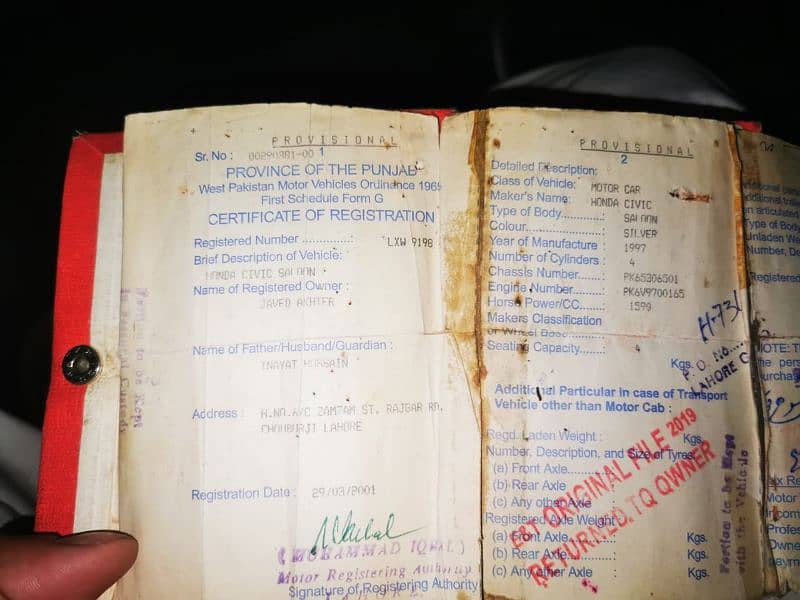 PROVISIONAL
1
Sr. No :
PROVINCE OF THE PUNJAB
West Pakistan Motor Vehicles Ordinance 1965
First Schedule Form G
CERTIFICATE OF REGISTRATION
Registered Number ............: LXW 9198
Brief Description of Vehicle:
HONDA CIVIC SALOON
Name of Registered Owner :
JAVED AKHTER
Name of Father/Husband/Guardian :
INAYAT HUSSAIN
Address : H.NO.A/C ZAMZAM ST. RAJGAR RD.
CHOUBURJI LAHORE
Registration Date : 29/03/2001
(MUHAMMAD IQBAL)
Motor Registering Authority
Signature of Registering Authority
PROVISIONAL
2
Detailed Description:
Class of Vehicle: MOTOR CAR
Maker's Name: HONDA CIVIC
Type of Body...........: SALOON
Colour....................: SILVER
Year of Manufacture : 1997
Number of Cylinders : 4
Chassis Number......: PK65306501
Engine Number.......: PK6V9700165
Horse Power/CC.....: 1590
Makers Classification
or Wheel Base.........:
Seating Capacity......: 4
Kgs.
H-731
P. O. No.
LAHORE G
Additional Particular in case of Transport
Vehicle other than Motor Cab :
Regd. Laden Weight : Kgs.
Number, Description, and Size of Tyres
(a) Front Axle
(b) Rear Axle :
(c) Any other Axle
Registered Axle Weight
(a) Front Axle Kgs.
(b) Rear Axle : Kgs.
(c) Any other Axle : Kgs.
E&T ORIGINAL FILE 2019
RETURNED TO OWNER
Portion to be Kept
with the Vehicle